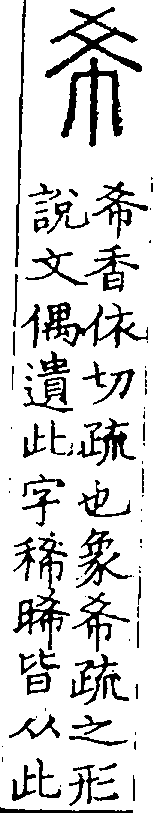 希
希香依切疏也象希疏之形
說文偶遺此字稀晞皆从此